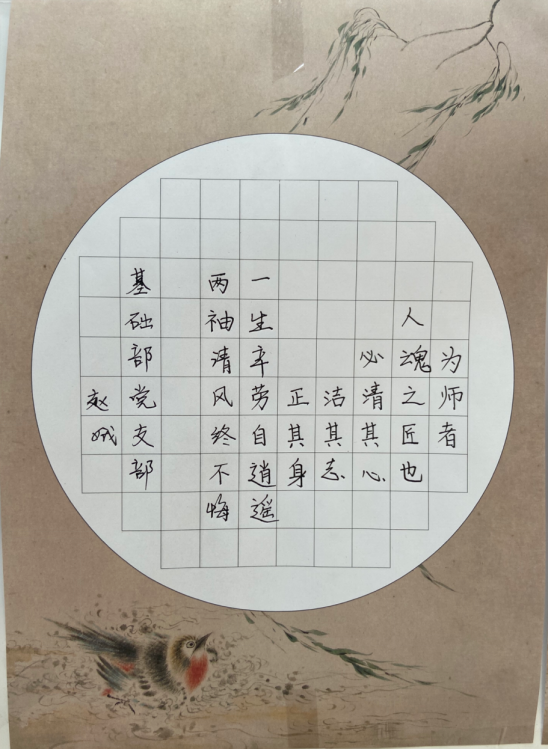 为师者
人魂之匠也
必清其心
洁其志
正其身
一生辛劳自逍遥
两袖清风终不悔
基础部党支部
赵娥